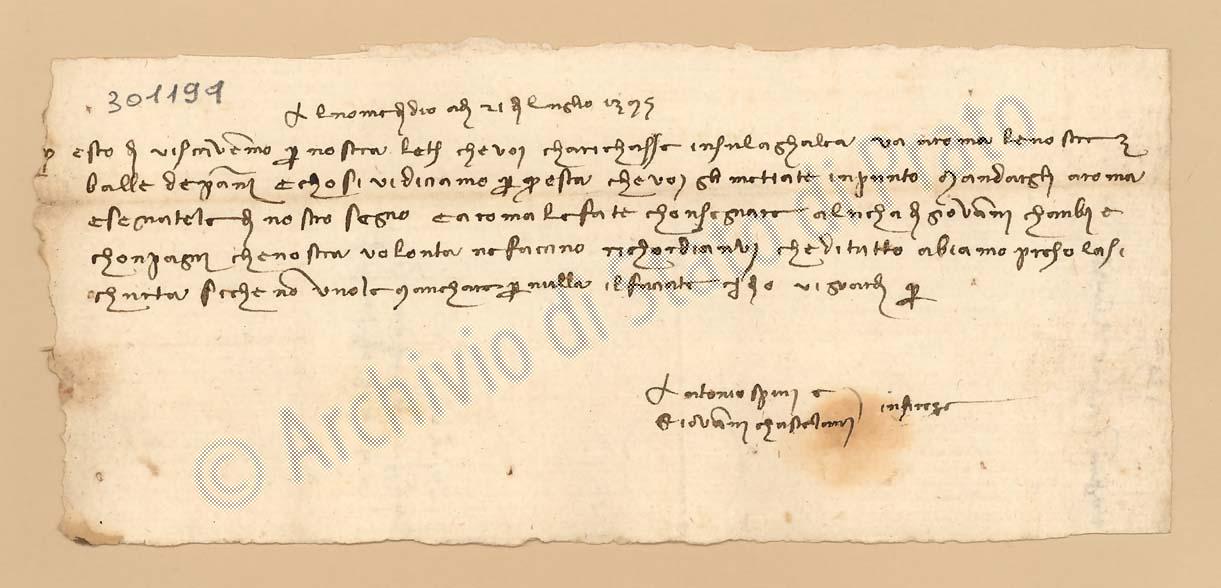 301191
Al nome di dio adì 21 di luglio 1395
Questo dì vi scrivemo per nostra letera che voi charichasse in su la ghalea va a roma le nostre 3
balle de panni e chosì vi diciamo per questa che voi gli metiate in punto mandargli a roma
e segnatele di nostro segno e a roma le fate chonsegnare a lucha di giovanni chanbi e
chonpagni che nostra volontà ne facino richordianvi che di tutto abiamo preso la si
churtà sicché no vuole manchare per nulla il facciate cristo vi guardi per
Antonio spini e
Giovanni chastelani in firenze
© Archivio di Stato di Prato